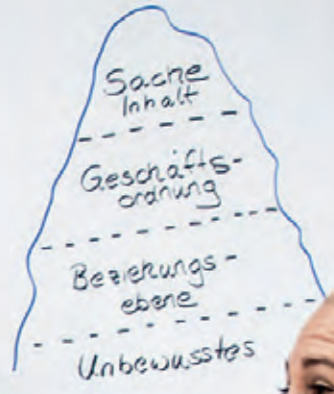 Sache
Inhalt
Geschäfts-
ordnung
Beziehungs-
ebene
Unbewusstes